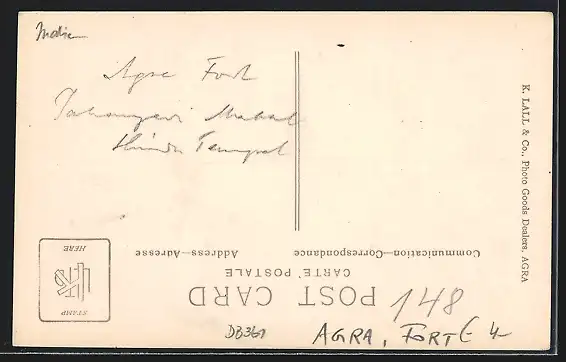 India
Agra Fort
Jahangiri Mahal
Hindu Tempel
K. LALL & Co., Photo Goods Dealers, AGRA
Communication—Correspondance
Address—Adresse
CARTE POSTALE
POST CARD
STAMP
HERE
148
DB361
AGRA, FORT